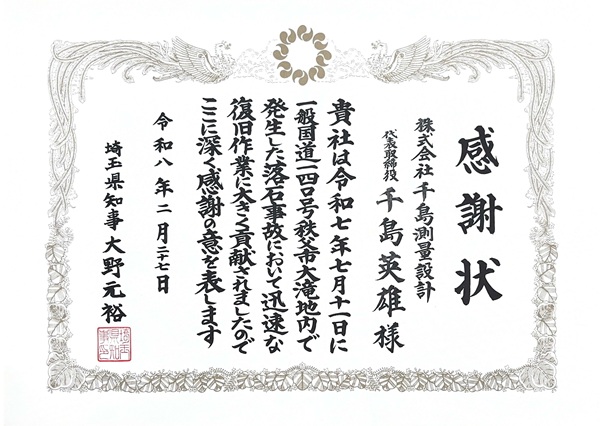 感謝状
株式会社千島測量設計
代表取締役 千島英雄様
貴社は令和七年七月十一日に
一般国道一四〇号秩父市大滝地内で
発生した落石事故において迅速な
復旧作業に大きく貢献されましたので
ここに深く感謝の意を表します
令和八年二月二十七日
埼玉県知事 大野元裕